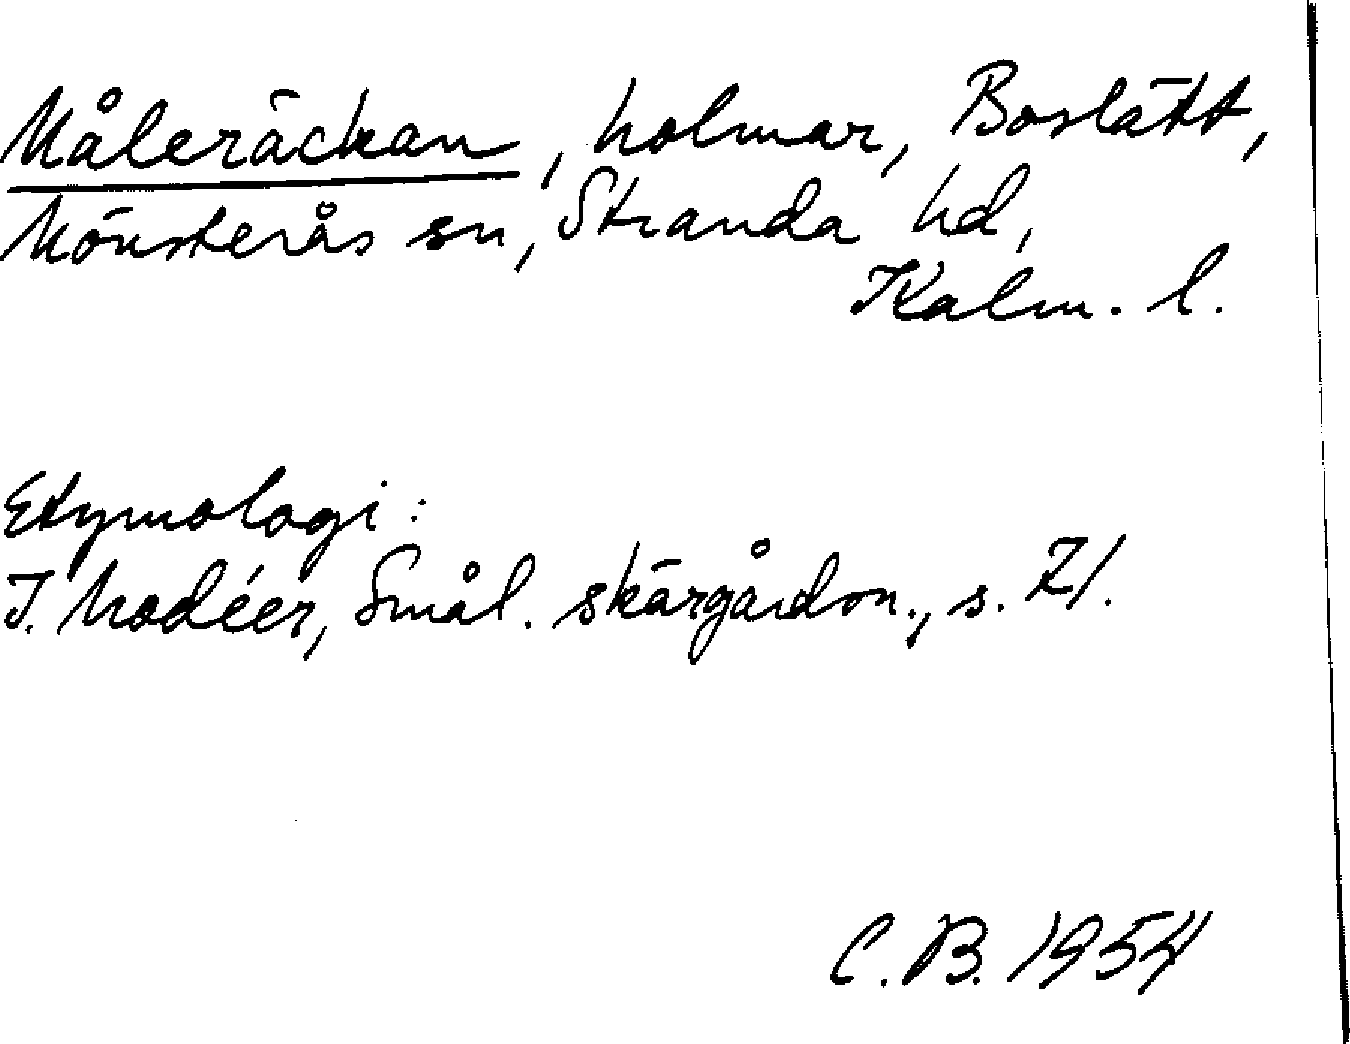 Måleräckan, holmar, Boslätt,
Mönsterås sn, Stranda hd,
Kalm. l.
Etymologi:
I. Modéer, Smål. skärgårdsn., s. 71.
C. B. 1954